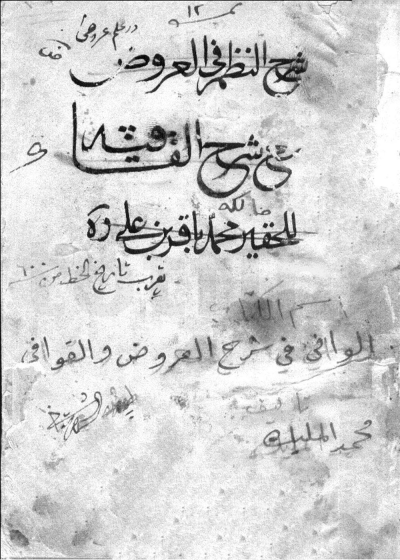 نمـ ١٢
در علم عروض
شرح النظم في العروض
شرح القافيه
مالكه
للحقير محمد باقر بن علي
يقرب تاريخ الخط من
اسم الكتاب
الوافي في شرح العروض والقوافي
تأليف
محمد المليك